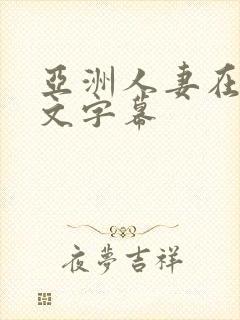 亞洲人妻在
文字幕
夜夢吉祥